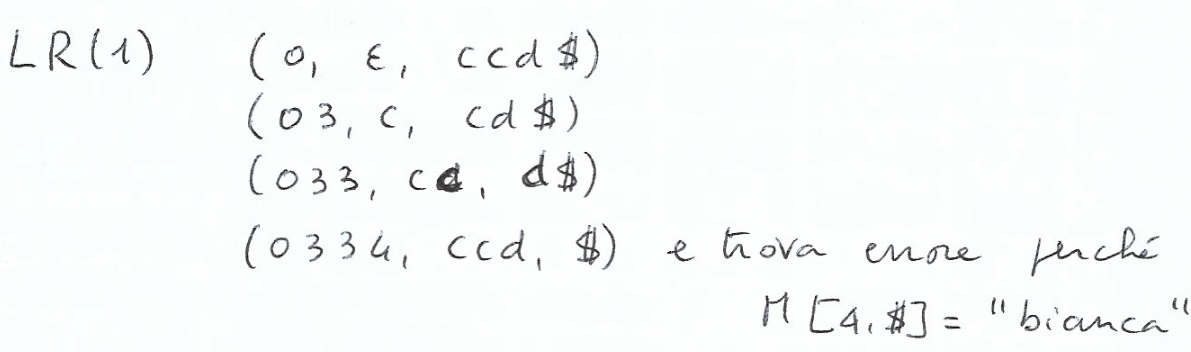 LR(1) (0, ε, ccd$)
(03, c, cd$)
(033, cc, d$)
(0334, ccd, $) e trova errore perché
M[4,$] = "bianca"